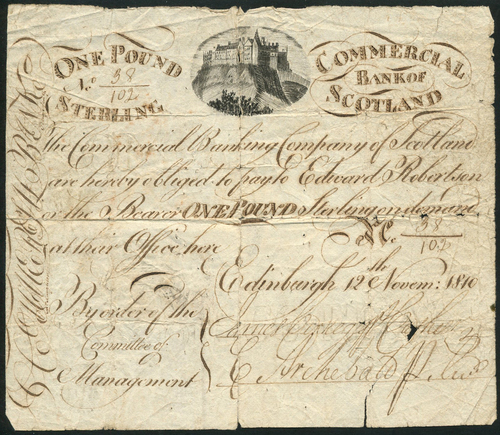 ONE POUND
No 38/102
STERLING
COMMERCIAL
BANK OF
SCOTLAND
The Commercial Banking Company of Scotland
are hereby obliged to pay to Edward Robertson
or the Bearer ONE POUND Sterling on demand
at their Office here
No 38/102
Edinburgh 12th Novem: 1810
By order of the
Committee of
Management
Archibald